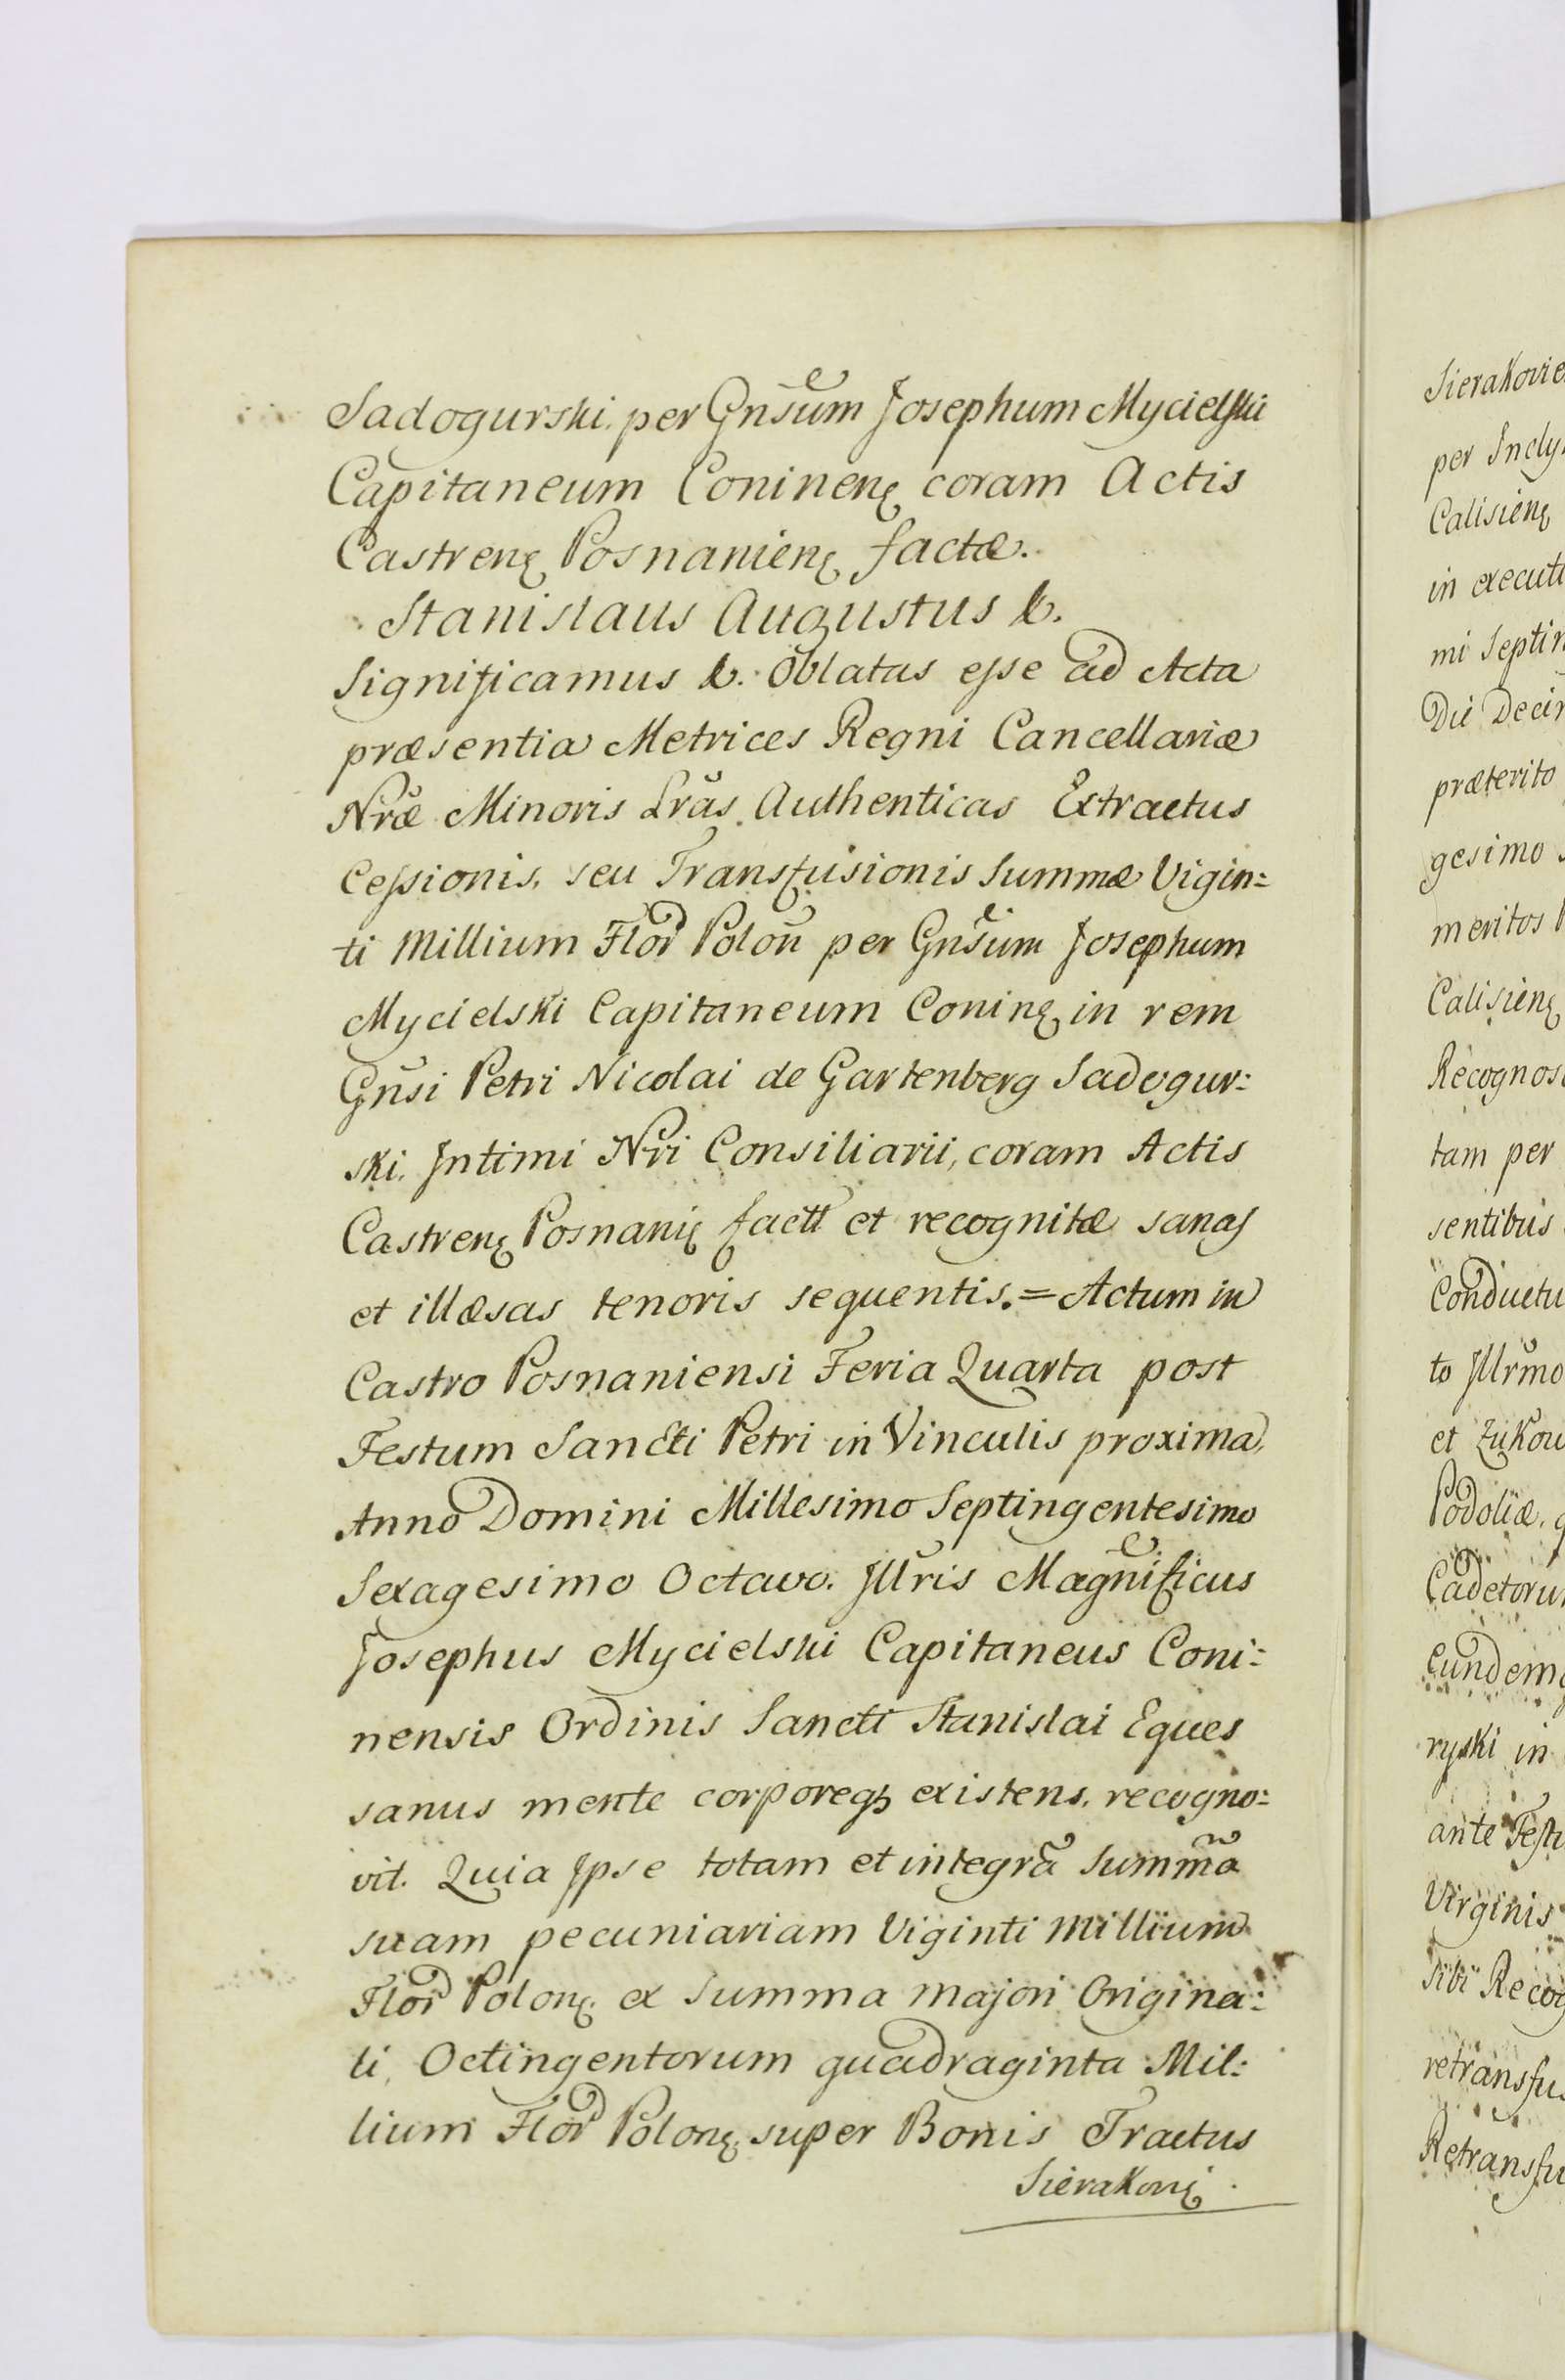 Sadogurski. per Gnsum Josephum Mycielski
Capitaneum Coninenę coram Actis
Castrenę Posnanienę factæ.
Stanislaus Augustus &.
Significamus &. Oblatas esse ad Acta
præsentia Metrices Regni Cancellariæ
Nræ Minoris Lras Authenticas Extractus
Cessionis, seu Transfusionis Summæ Vigin=
ti Millium Flor Polon per Gnsum Josephum
Mycielski Capitaneum Coninę in rem
Gnsi Petri Nicolai de Gartenberg Sadogur=
ski. Intimi Nri Consiliarii, coram Actis
Castrenę Posnanię factt et recognitæ sanas
et illæsas tenoris sequentis. = Actum in
Castro Posnaniensi Feria Quarta post
Festum Sancti Petri in Vinculis proxima,
Anno Domini Millesimo Septingentesimo
Sexagesimo Octavo. Illris Magnificus
Josephus Mycielski Capitaneus Coni=
nensis Ordinis Sancti Stanislai Eques
sanus mente corporeqȝ existens, recogno=
vit. Quia Ipse totam et integrã Summã
suam pecuniariam Viginti Millium
Flor Polonę. ex Summa majori Origina=
li, Octingentorum quadraginta Mil=
lium Flor Polonę. super Bonis Tractus
Sierakovię.
Sierakovie
per Incly
Calisienę
in executi
mi Septin
Die Decim
præterito
gesimo
meritos
Calisienę
Recognos
tam per
sentibus
Conductu
to Illrmo
et Zukow
Podoliæ.
Cadetoru
Eundem
ryski in
ante Festu
Virginis
sibi Recog
retransfu
Retransfu